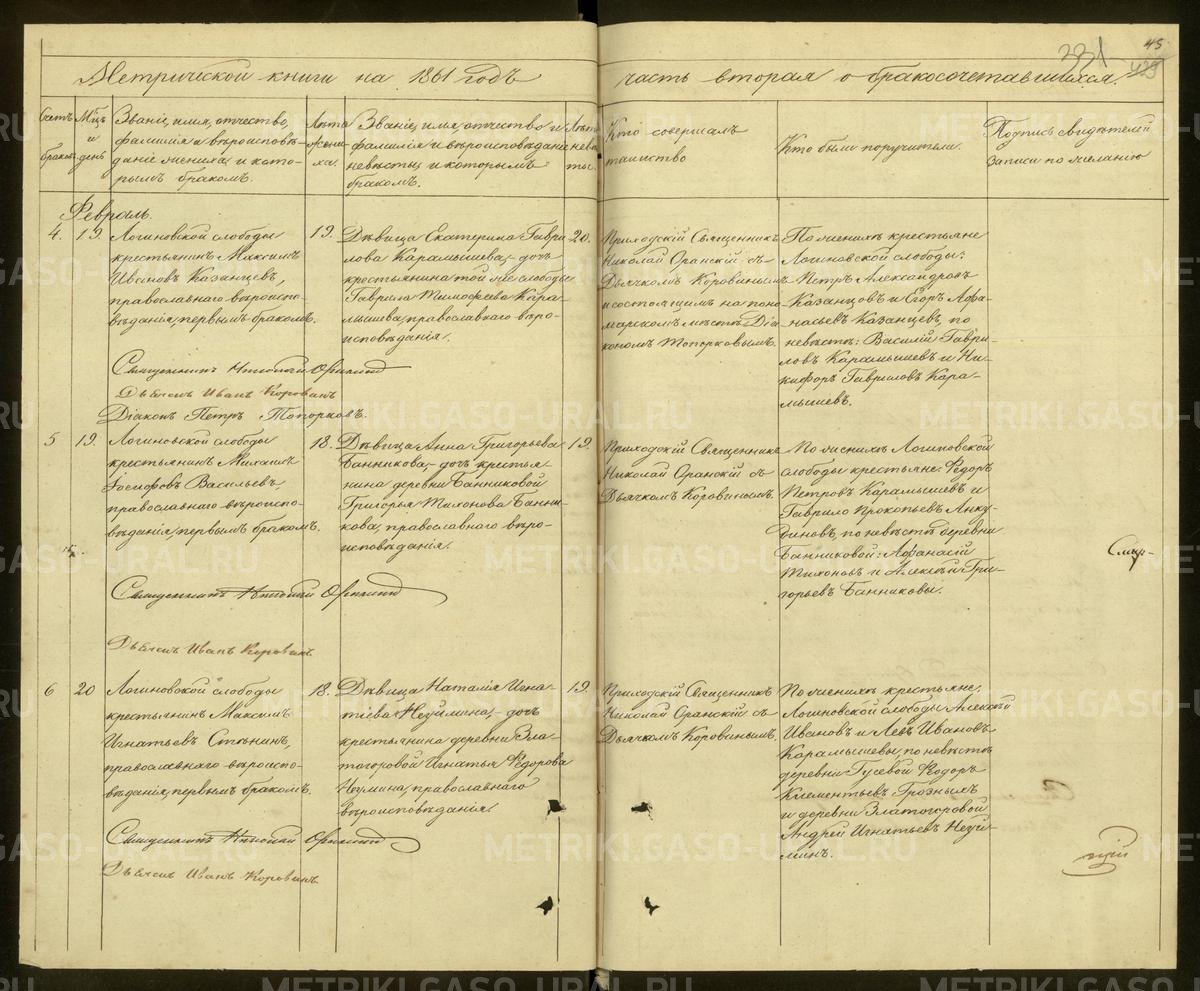 45
331
429
Метрической книги на 1861 годъ
часть вторая о бракосочетавшихся.
Счетъ браковъ
Мѣцъ и день
Званіе, имя, отчество,
фамилія и вѣроисповѣ-
даніе жениха, и кото-
рымъ бракомъ.
Лѣта жени-
ха.
Званіе, имя, отчество и
фамилія и вѣроисповѣданіе
невѣсты и которымъ
бракомъ.
Лѣта невѣс-
ты.
Кто совершалъ
таинство
Кто были поручители.
Подпись свидѣтелей
записи по желанію
Февраль.
4.
19.
Логиновской слободы
крестьянинъ Максимъ
Ивановъ Казанцевъ,
православнаго вѣроиспо-
вѣданія, первымъ бракомъ.
19.
Дѣвица Екатерина Гаври
лова Карамышева, дочь
крестьянина той же слободы
Гаврила Тимофеева Кара-
мышева, православнаго вѣро-
исповѣданія.
20.
Приходскій Священникъ
Николай Оранскій съ
Дьячкомъ Коровинымъ
и состоящимъ на поно-
марскомъ мѣстѣ Діа
кономъ Топорковымъ.
По женихѣ крестьяне
Логиновской слободы:
Петръ Александровъ
Казанцовъ и Егоръ Афа-
насьевъ Казанцевъ, по
невѣстѣ: Василій Гаври-
ловъ Карамышевъ и Ни-
кифоръ Гавриловъ Кара-
мышевъ.
Священникъ Николай Оранскій
Дьячекъ Иванъ Коровинъ
Діаконъ Петръ Топорковъ.
5
19.
Логиновской слободы
крестьянинъ Михаилъ
Іосифовъ Васильевъ
православнаго вѣроиспо-
вѣданія, первымъ бракомъ.
18.
Дѣвица Анна Григорьева
Банникова, дочь крестья
нина деревни Банниковой
Григорья Тихонова Банни-
кова, православнаго вѣро-
исповѣданія.
19.
Приходскій Священникъ
Николай Оранскій съ
Дьячкомъ Коровинымъ.
По женихѣ Логиновской
слободы крестьяне Ѳедоръ
Петровъ Карамышевъ и
Гаврило Прокопьевъ Анку-
диновъ, по невѣстѣ деревни
Банниковой: Афанасій
Тихоновъ и Алексѣй Гри-
горьевъ Банниковы.
Священникъ Николай Оранскій
Дьячекъ Иванъ Коровинъ
6
20
Логиновской слободы
крестьянинъ Максимъ
Игнатьевъ Стѣнинъ,
православнаго вѣроиспо-
вѣданія, первымъ бракомъ.
18.
Дѣвица Наталія Игна-
тіева Неуймина, дочь
крестьянина деревни Зла-
тогоровой Игнатья Ѳедорова
Неумина, православнаго
вѣроисповѣданія.
19.
Приходскій Священникъ
Николай Оранскій съ
Дьячкомъ Коровинымъ.
По женихѣ крестьяне,
Логиновской слободы Алексѣй
Ивановъ и Левъ Ивановъ
Карамышевы, по невѣстѣ
деревни Гусевой Ѳодоръ
Климентьевъ Грозныхъ
и деревни Златогоровой
Андрей Игнатьевъ Неуй-
минъ.
Священникъ Николай Оранскій
Дьячекъ Иванъ Коровинъ
METRIKI.GASO-URAL.RU